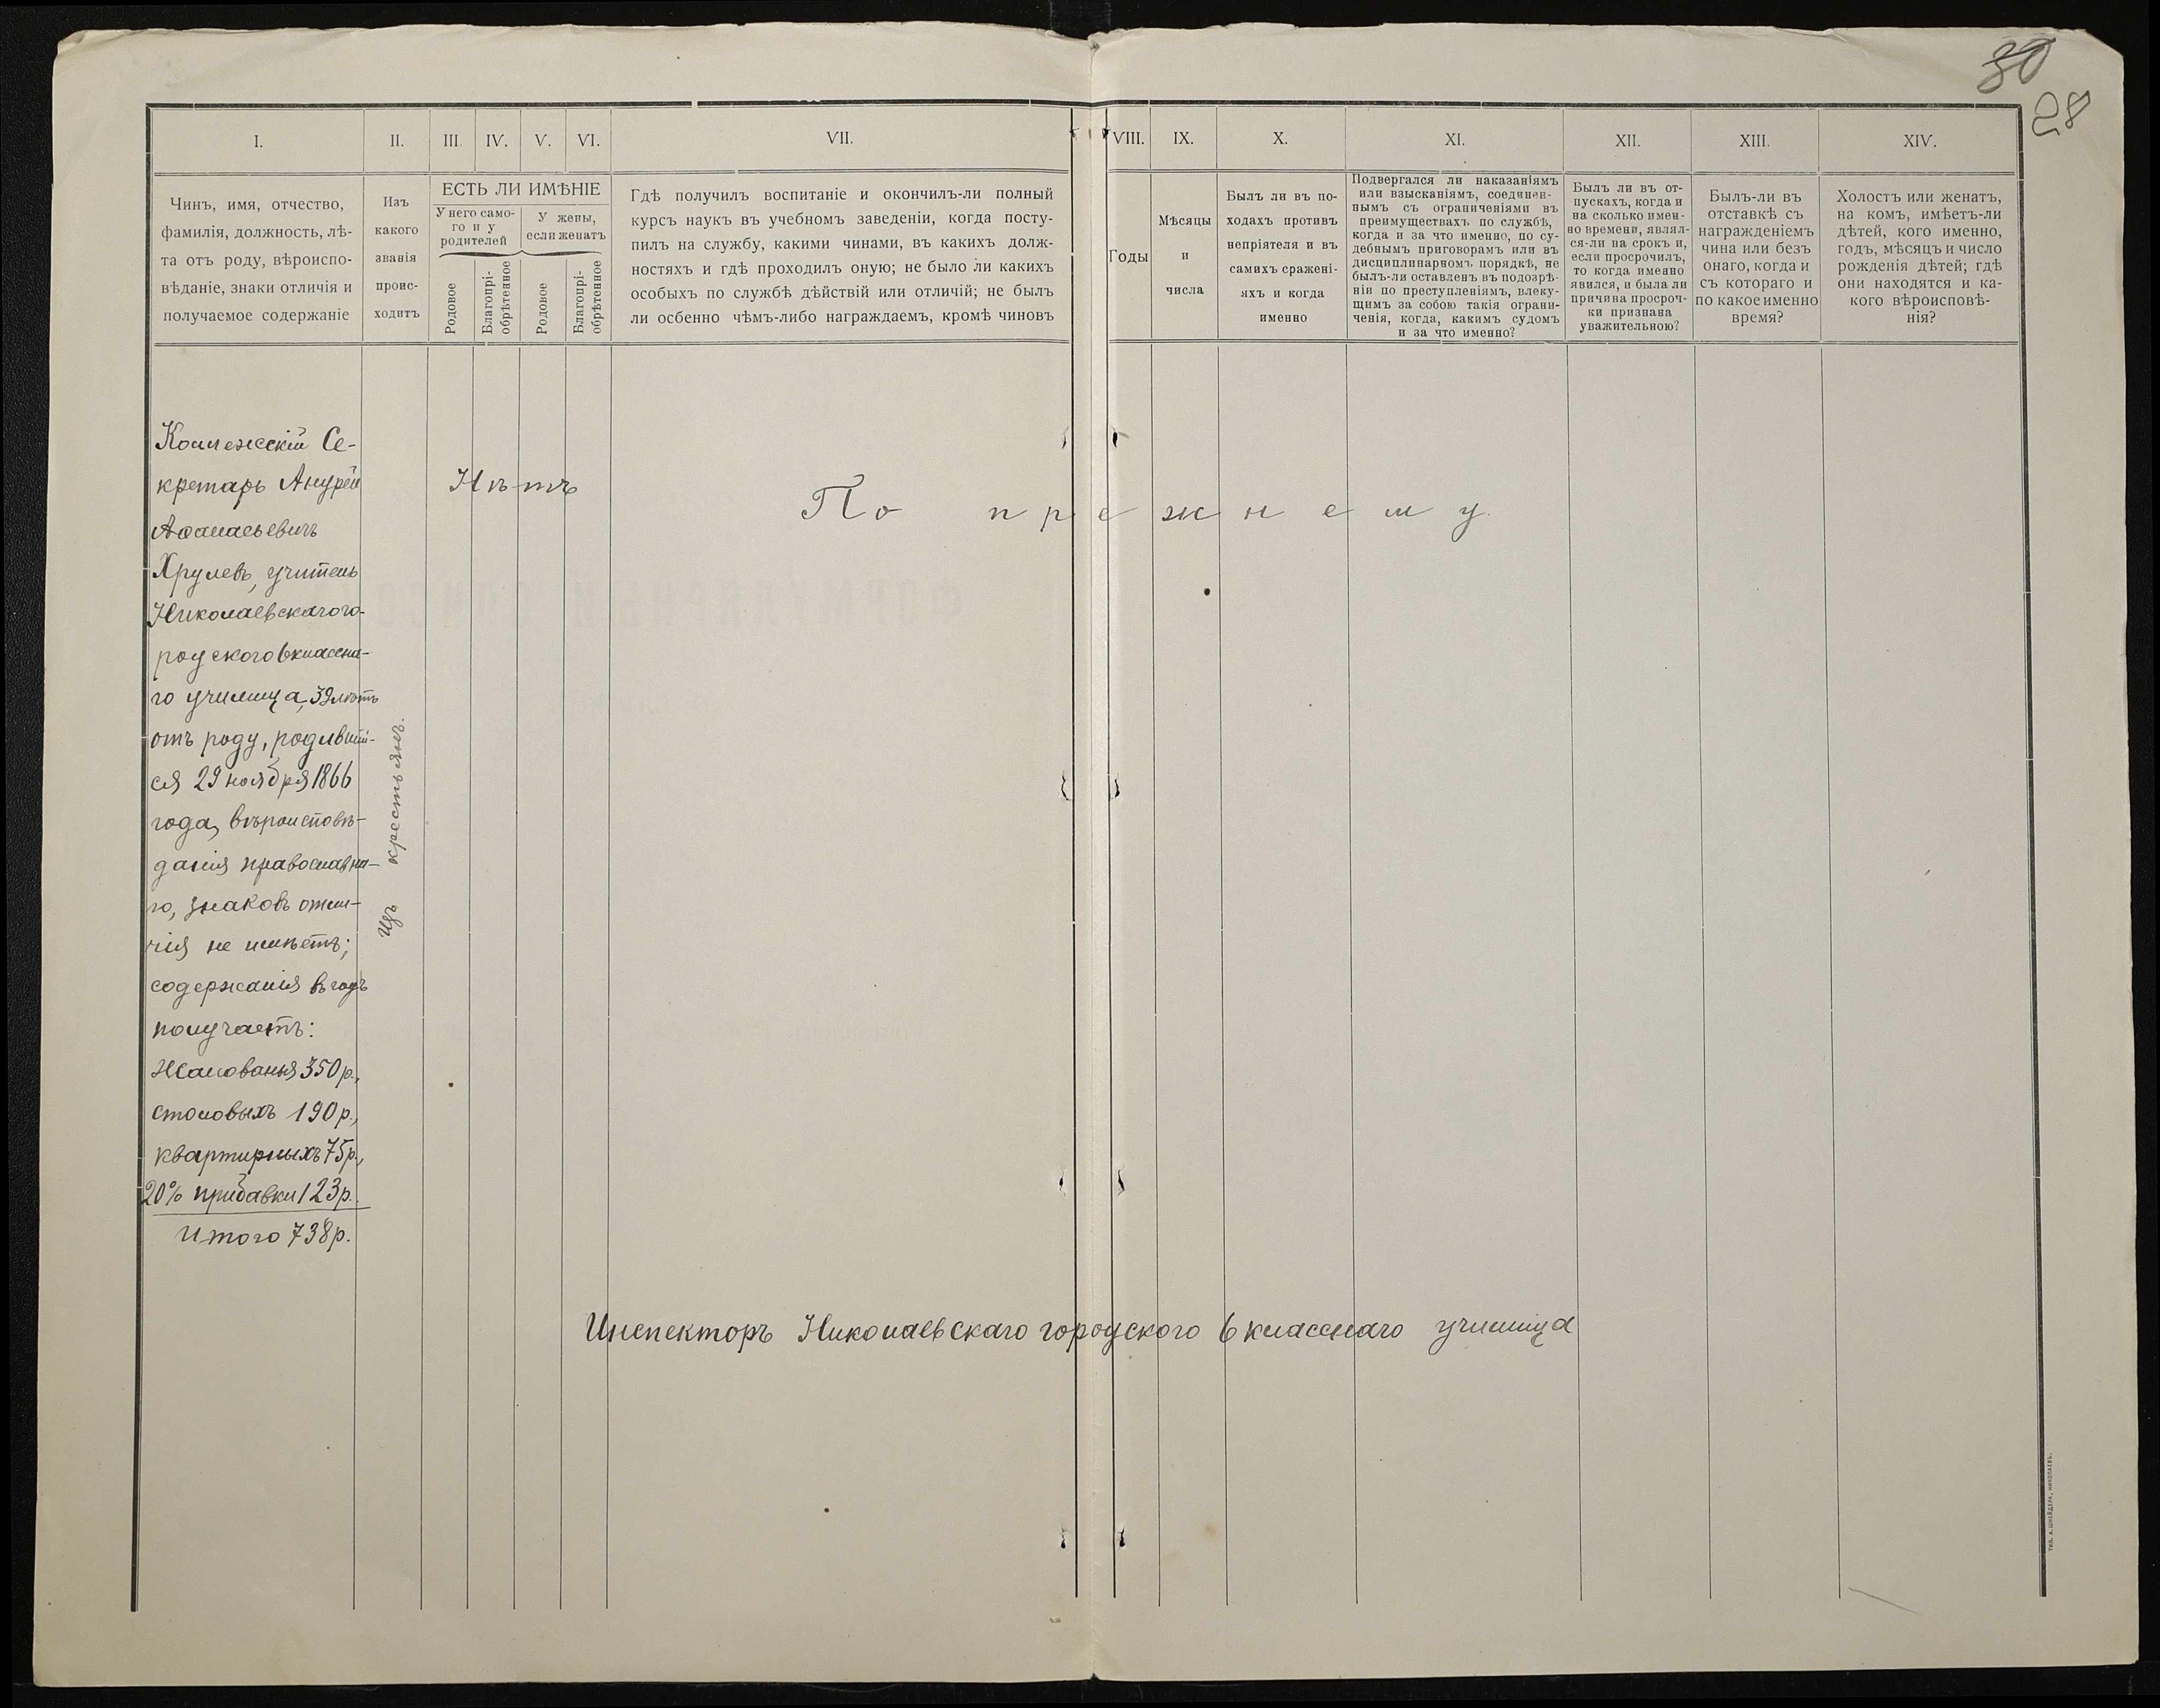 30
28
I.
II.
III.
IV.
V.
VI.
VII.
VIII.
IX.
X.
XI.
XII.
XIII.
XIV.
Чинъ, имя, отчество,
фамилія, должность, лѣ-
та отъ роду, вѣроиспо-
вѣданіе, знаки отличія и
получаемое содержаніе
Изъ
какого
званія
проис-
ходитъ
ЕСТЬ ЛИ ИМѢНІЕ
У него само-
го и у
родителей
У жены,
если женатъ
Родовое
Благопрі-
обрѣтенное
Родовое
Благопрі-
обрѣтенное
Гдѣ получилъ воспитаніе и окончилъ-ли полный
курсъ наукъ въ учебномъ заведеніи, когда посту-
пилъ на службу, какими чинами, въ какихъ долж-
ностяхъ и гдѣ проходилъ оную; не было ли какихъ
особыхъ по службѣ дѣйствій или отличій; не былъ
ли осбенно чѣмъ-либо награждаемъ, кромѣ чиновъ
Годы
Мѣсяцы
и
числа
Былъ ли въ по-
ходахъ противъ
непріятеля и въ
самихъ сражені-
яхъ и когда
именно
Подвергался ли наказаніямъ
или взысканіямъ, соединен-
нымъ съ ограниченіями въ
преимуществахъ по службѣ,
когда и за что именно, по су-
дебнымъ приговорамъ или въ
дисциплинарномъ порядкѣ, не
былъ-ли оставленъ въ подозрѣ-
ніи по преступленіямъ, влеку-
щимъ за собою такія ограни-
ченія, когда, какимъ судомъ
и за что именно?
Былъ ли въ от-
пускахъ, когда и
на сколько имен-
но времени, являл-
ся-ли на срокъ и,
если просрочилъ,
то когда именно
явился, и была ли
причина просроч-
ки признана
уважительною?
Былъ-ли въ
отставкѣ съ
награжденіемъ
чина или безъ
онаго, когда и
съ котораго и
по какое именно
время?
Холостъ или женатъ,
на комъ, имѣетъ-ли
дѣтей, кого именно,
годъ, мѣсяцъ и число
рожденія дѣтей; гдѣ
они находятся и ка-
кого вѣроисповѣ-
нія?
Коллежскій Се-
кретарь Андрей
Аѳанасьевичъ
Хрулевъ, учитель
Николаевскаго го-
родского 6 классна-
го училища, 39 лѣтъ
отъ роду, родивший-
ся 29 ноября 1866
года, вѣроисповѣ-
данія православна-
го, знаковъ отли-
чія не имѣетъ;
содержанія въ годъ
получаетъ:
Жалованья 350 р.,
столовыхъ 190 р.,
квартирныхъ 75 р.,
20% прибавки 123 р.
Итого 738 р.
Изъ крестьянъ.
Нѣтъ
По прежнему.
Инспекторъ Николаевскаго городского 6 класснаго училища
ТИП. А. ШНЕЙДЕРА, НИКОЛАЕВЪ.